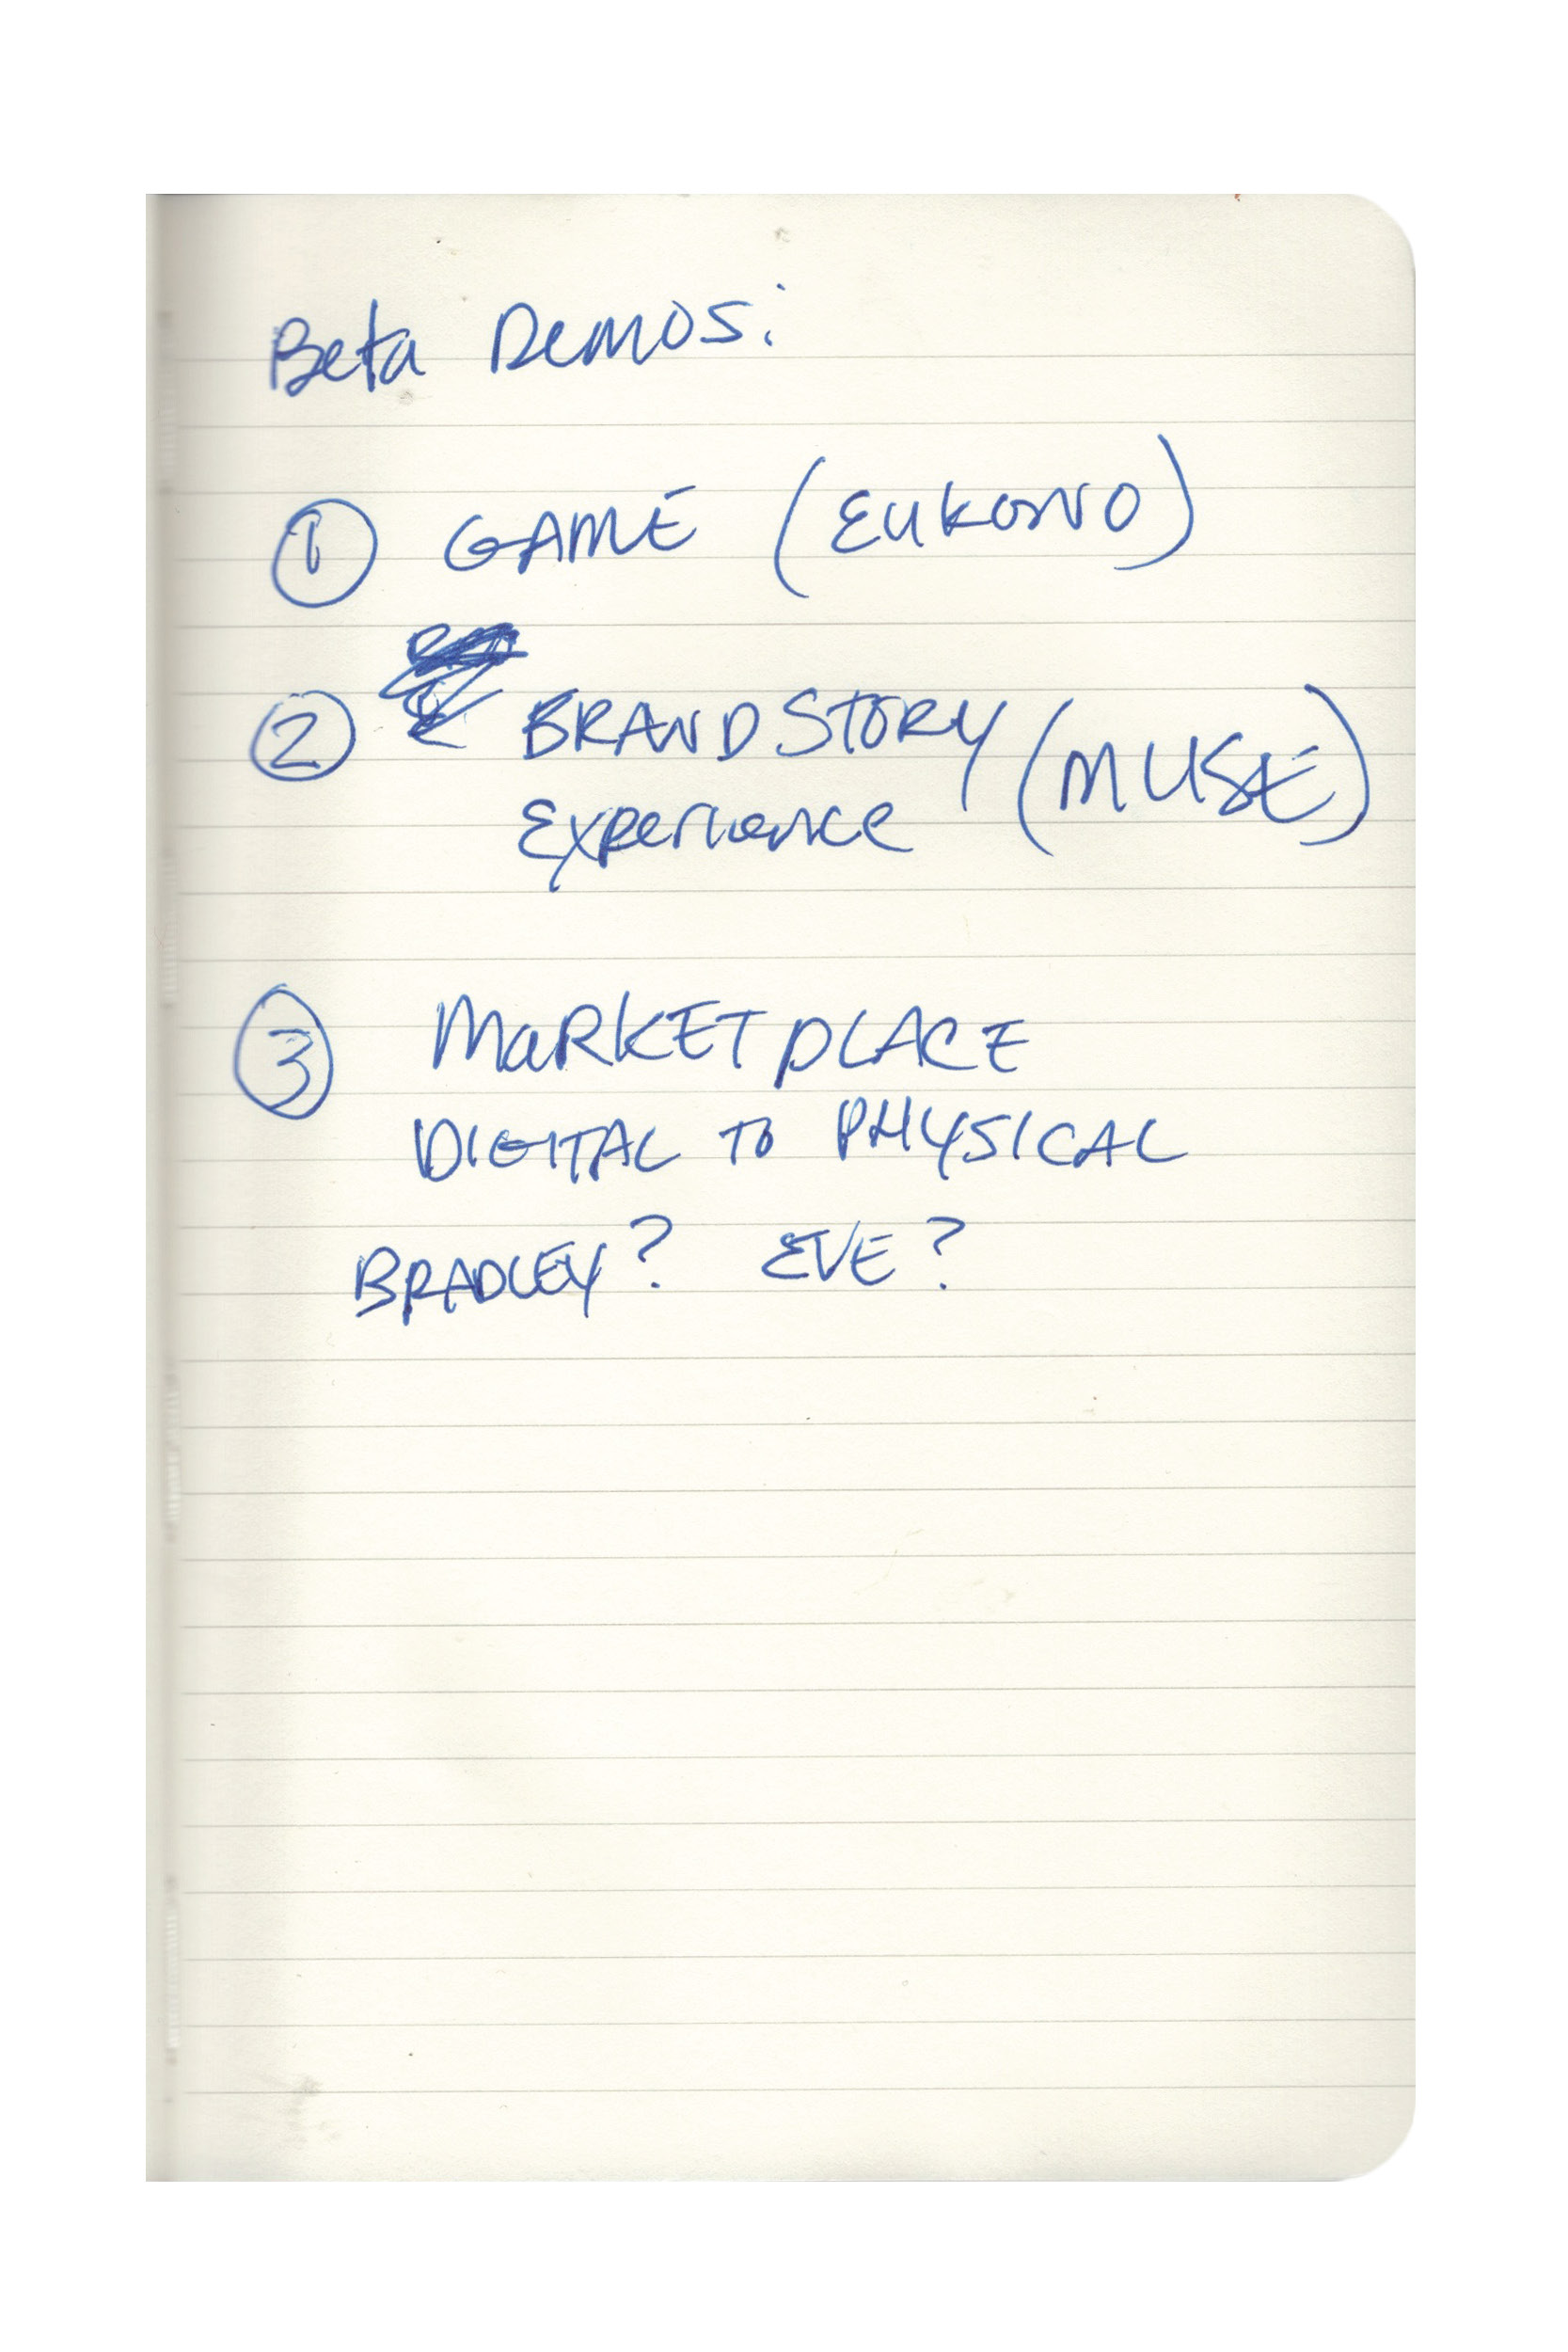 Beta Demos:
① GAME (EUKONO)
② BRAND STORY (MUSE)
Experience
③ MARKETPLACE
DIGITAL TO PHYSICAL
BRADLEY? EVE?